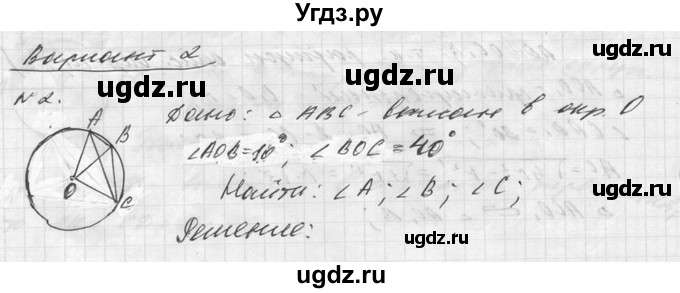 Угдз.ру
Вариант 2
№2.
Дано: △ABC - вписан в окр. O
∠AOB=90°; ∠BOC=40°
Найти: ∠A; ∠B; ∠C;
Решение:
A
B
O
C
ugdz.ru
ugdz.ru
ugdz.ru
ugdz.ru
ugdz.ru
ugdz.ru
ugdz.ru